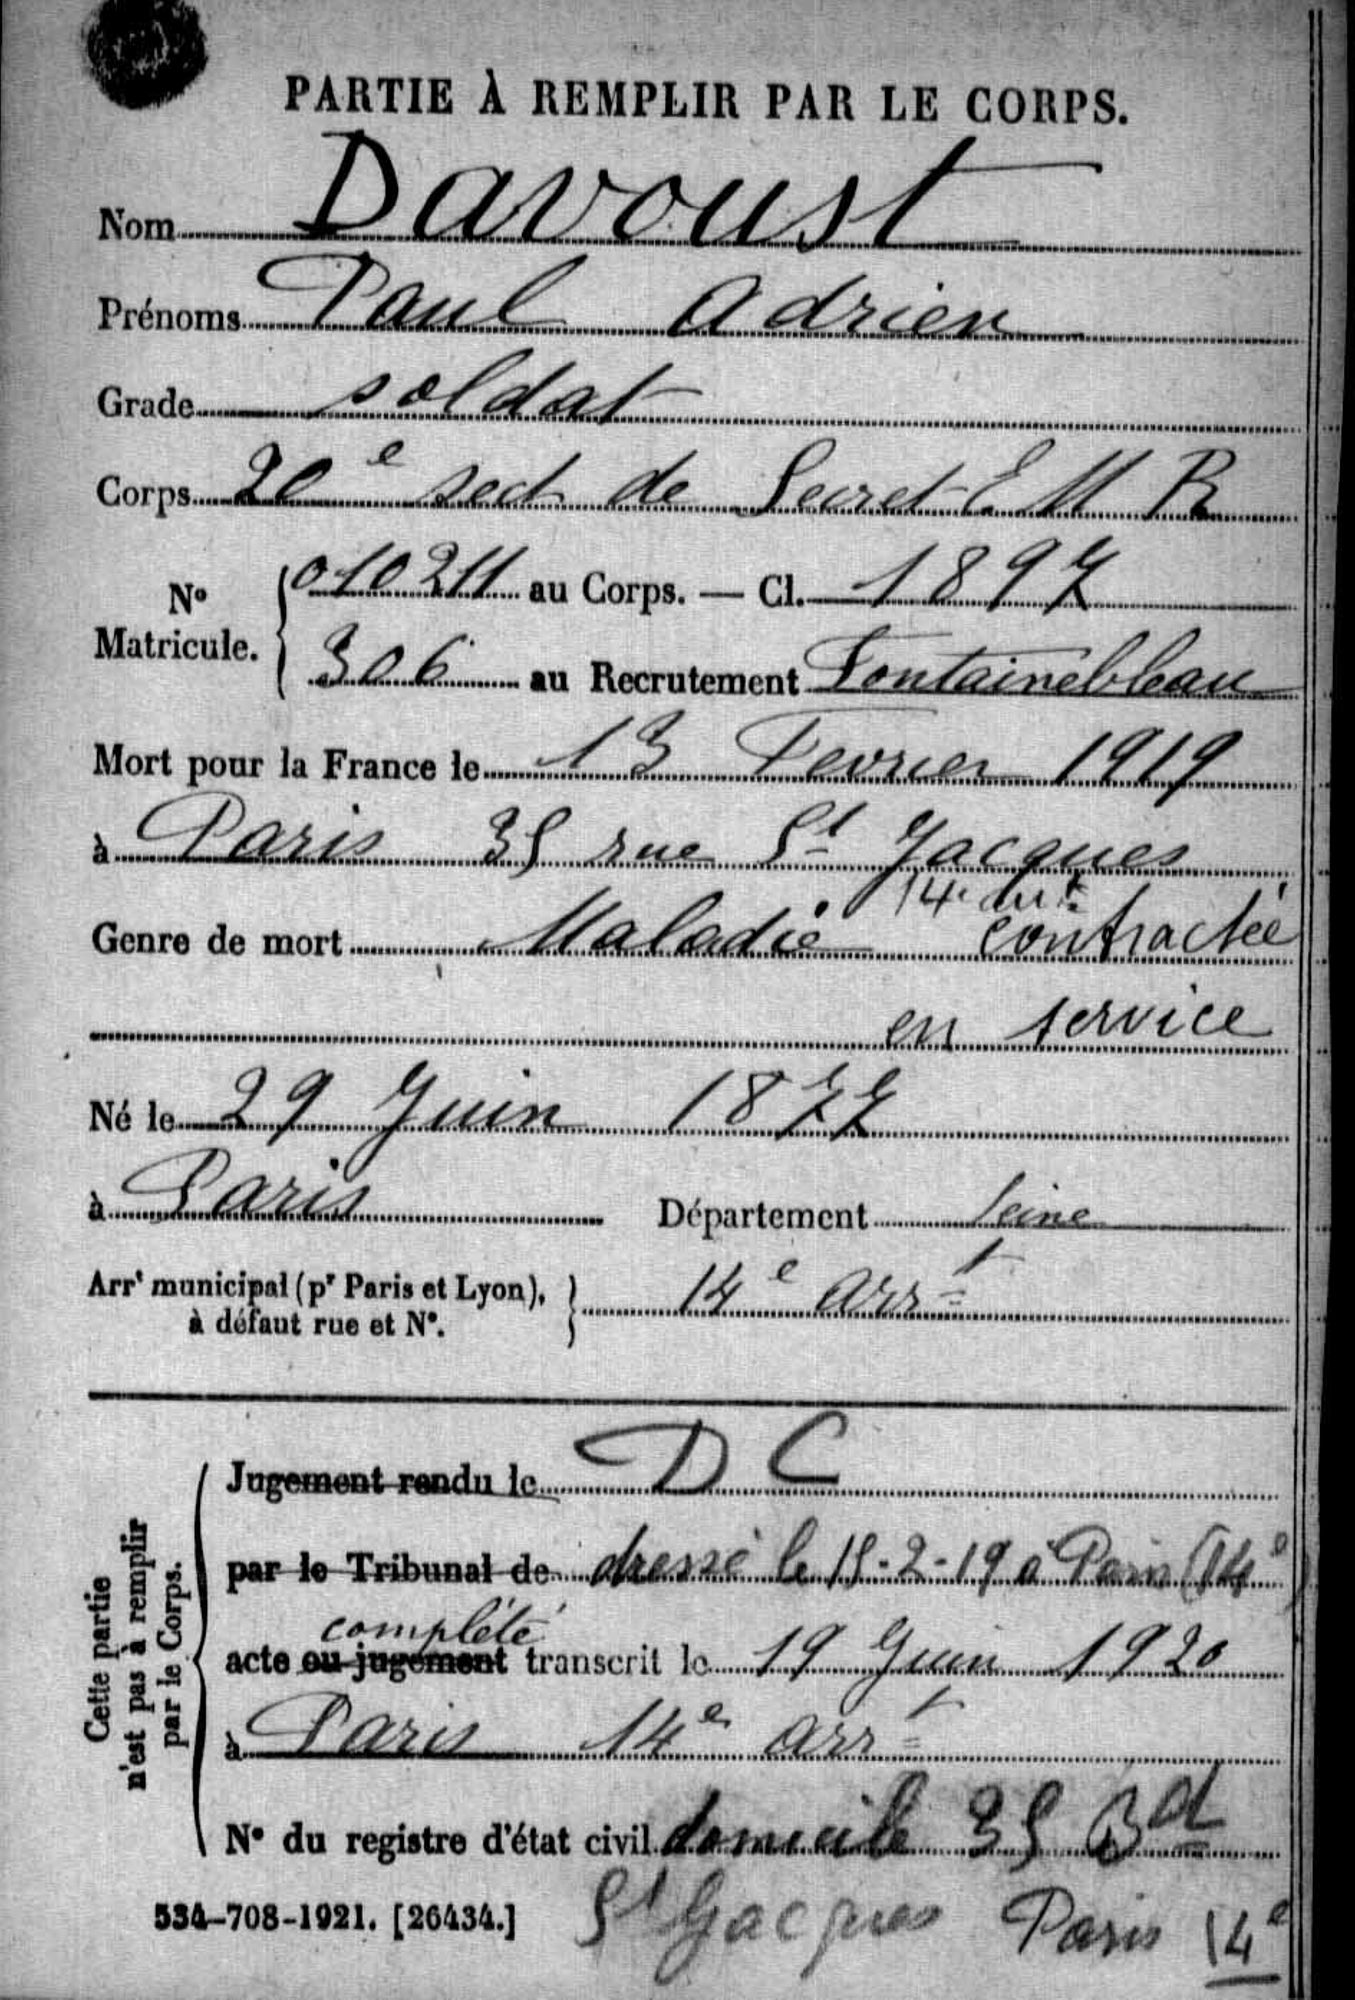 PARTIE À REMPLIR PAR LE CORPS.
Nom Davoust
Prénoms Paul Adrien
Grade soldat
Corps 20e sect de Secret E M R
No Matricule. 010211 au Corps. — Cl. 1897
306 au Recrutement Fontainebleau
Mort pour la France le 13 Fevrier 1919
à Paris 35 rue St Jacques
14e
Genre de mort Maladie contractée
en service
Né le 29 Juin 1877
à Paris Département Seine
Arrt municipal (pr Paris et Lyon), à défaut rue et No. 14e arrt
Cette partie n'est pas à remplir par le Corps.
Jugement rendu le D C
par le Tribunal de dressé le 15-2-19 à Paris (14e)
complété
acte ou jugement transcrit le 19 Juin 1920
à Paris 14e arrt
No du registre d'état civil domicile 35 Bd
St Jacques Paris 14e
534-708-1921. [26434.]